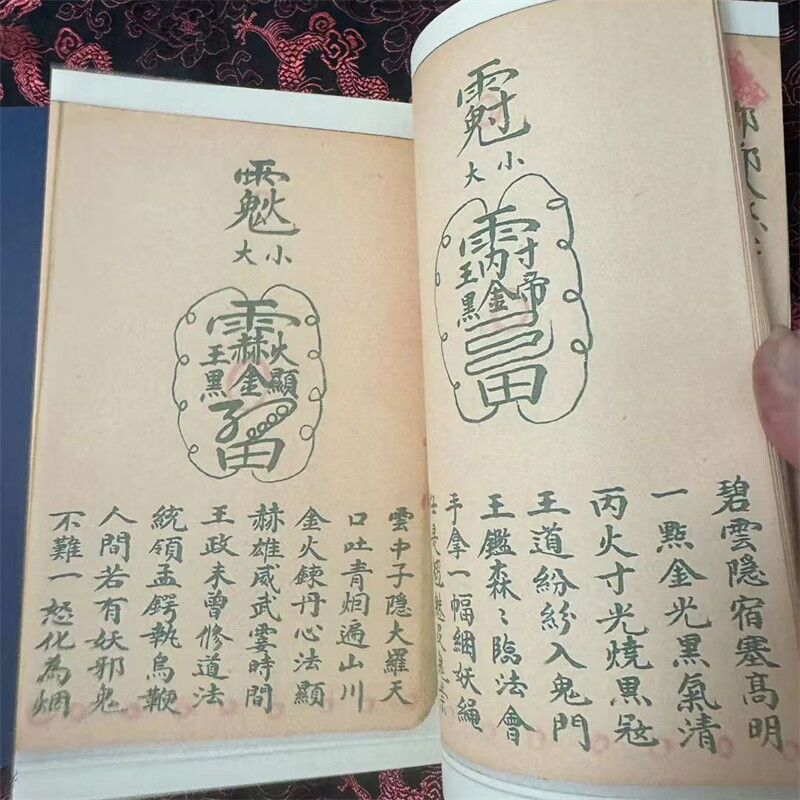 小大
雨
丙寸
王帝
黑金
田
碧雲隱宿塞高明
一點金光黑氣清
丙火寸光燒黑
王道紛紛入鬼門
王鑑森〻臨法會
手拿一幅綑妖繩
小大
雨
王赫火
黑金顯
田
雲中子隱大羅天
口吐青烟遍山川
金火鍊丹心法顯
赫雄威武霎時間
王政未曾修道法
統領孟鍔執烏鞭
人間若有妖邪鬼
不難一怒化為烟